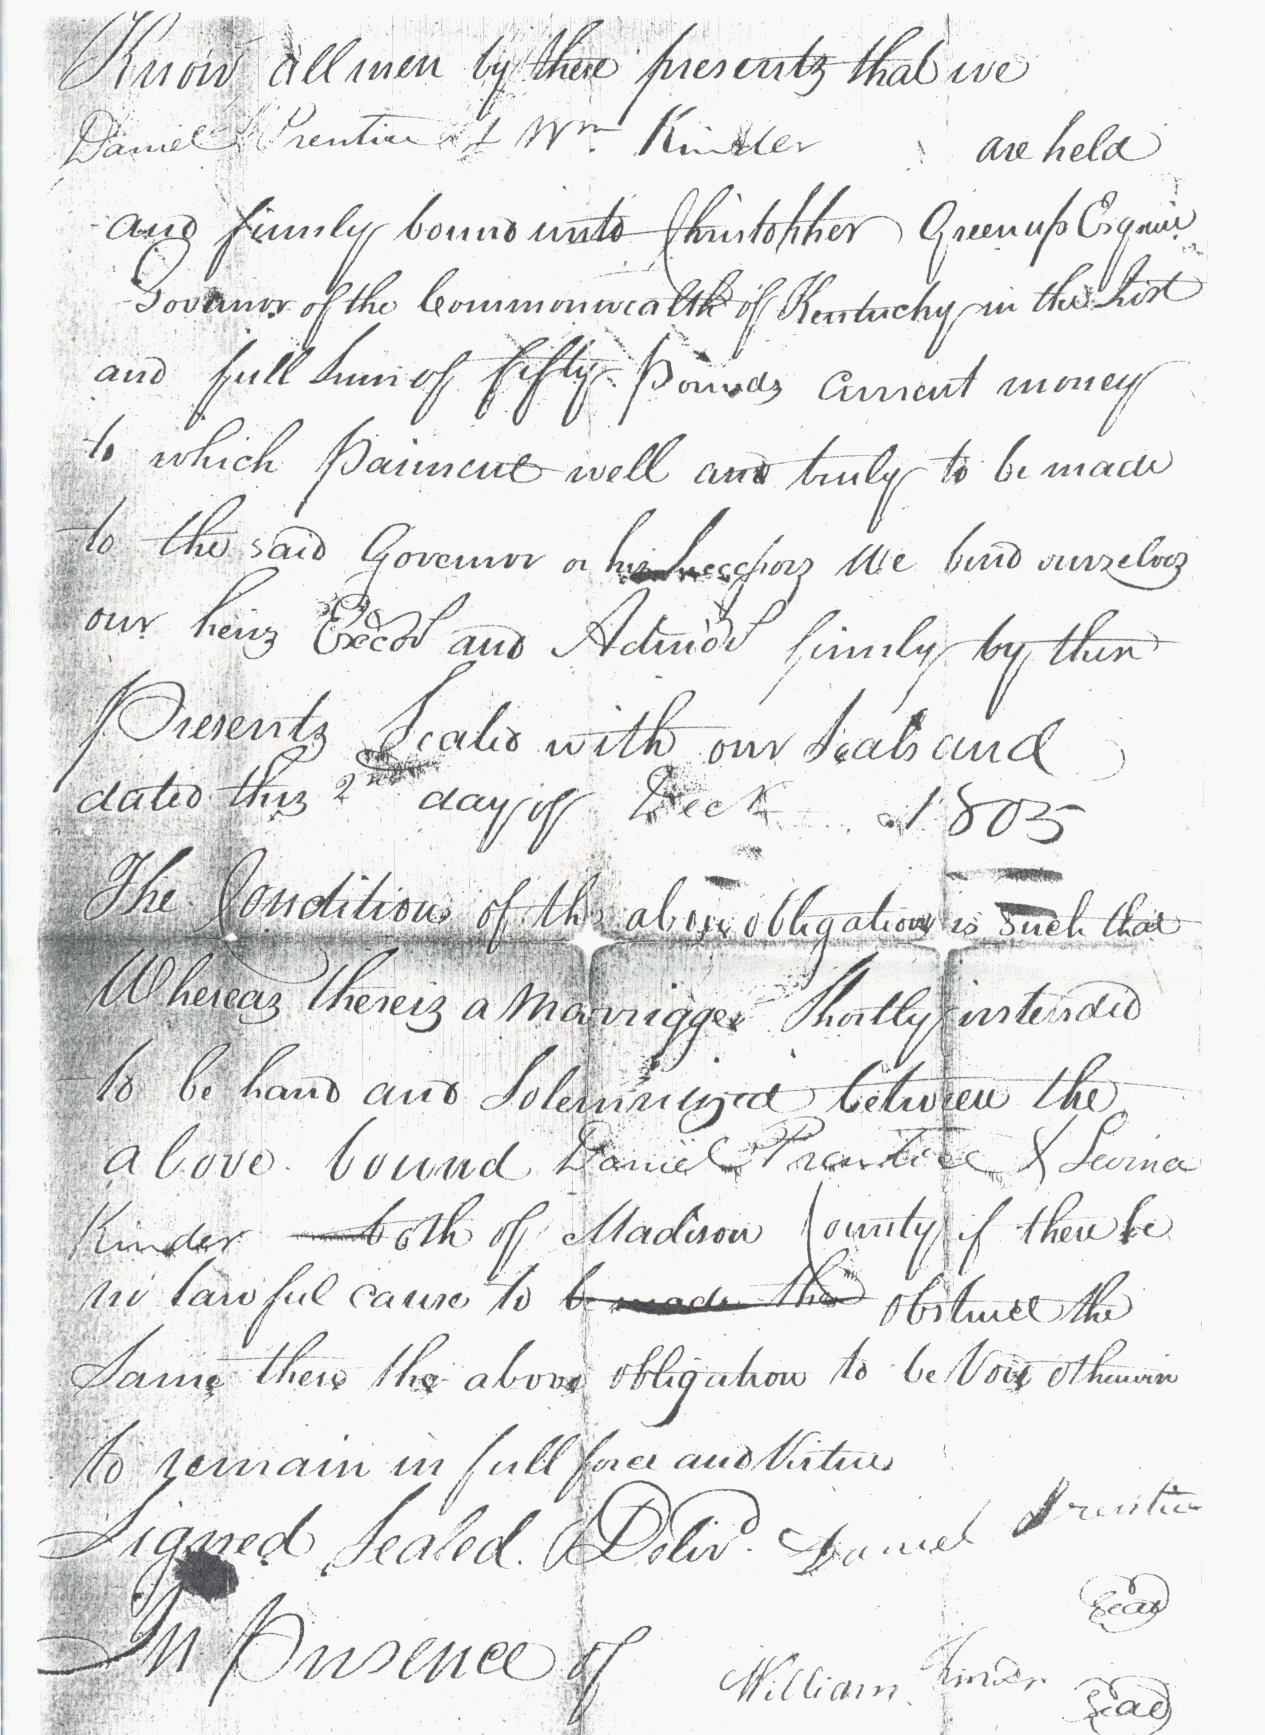 Know all men by these presents that we
Daniel Prentice & Wm Kinder are held
and firmly bound unto Christopher Greenup Esquire
Governor of the Commonwealth of Kentucky in the Just
and full Sum of fifty Pounds Current money
to which Paiment well and truly to be made
to the said Governor or his Successors We bind ourselves
our heirs Execors and Admors firmly by these
Presents Sealed with our Seals and
dated this 2nd day of Decr 1805
The Condition of the above obligation is Such that
Whereas there is a Marriagge Shortly intended
to be hand and Solemnized between the
above bound Daniel Prentice & Levina
Kinder both of Madison County if there be
no lawful cause to be made the obstruct the
Same then the above obligation to be Void otherwise
to remain in full force and Virtue
Signed Sealed & Delivd. Daniel Prentice
Seal
In Presence of William Kinder Seal